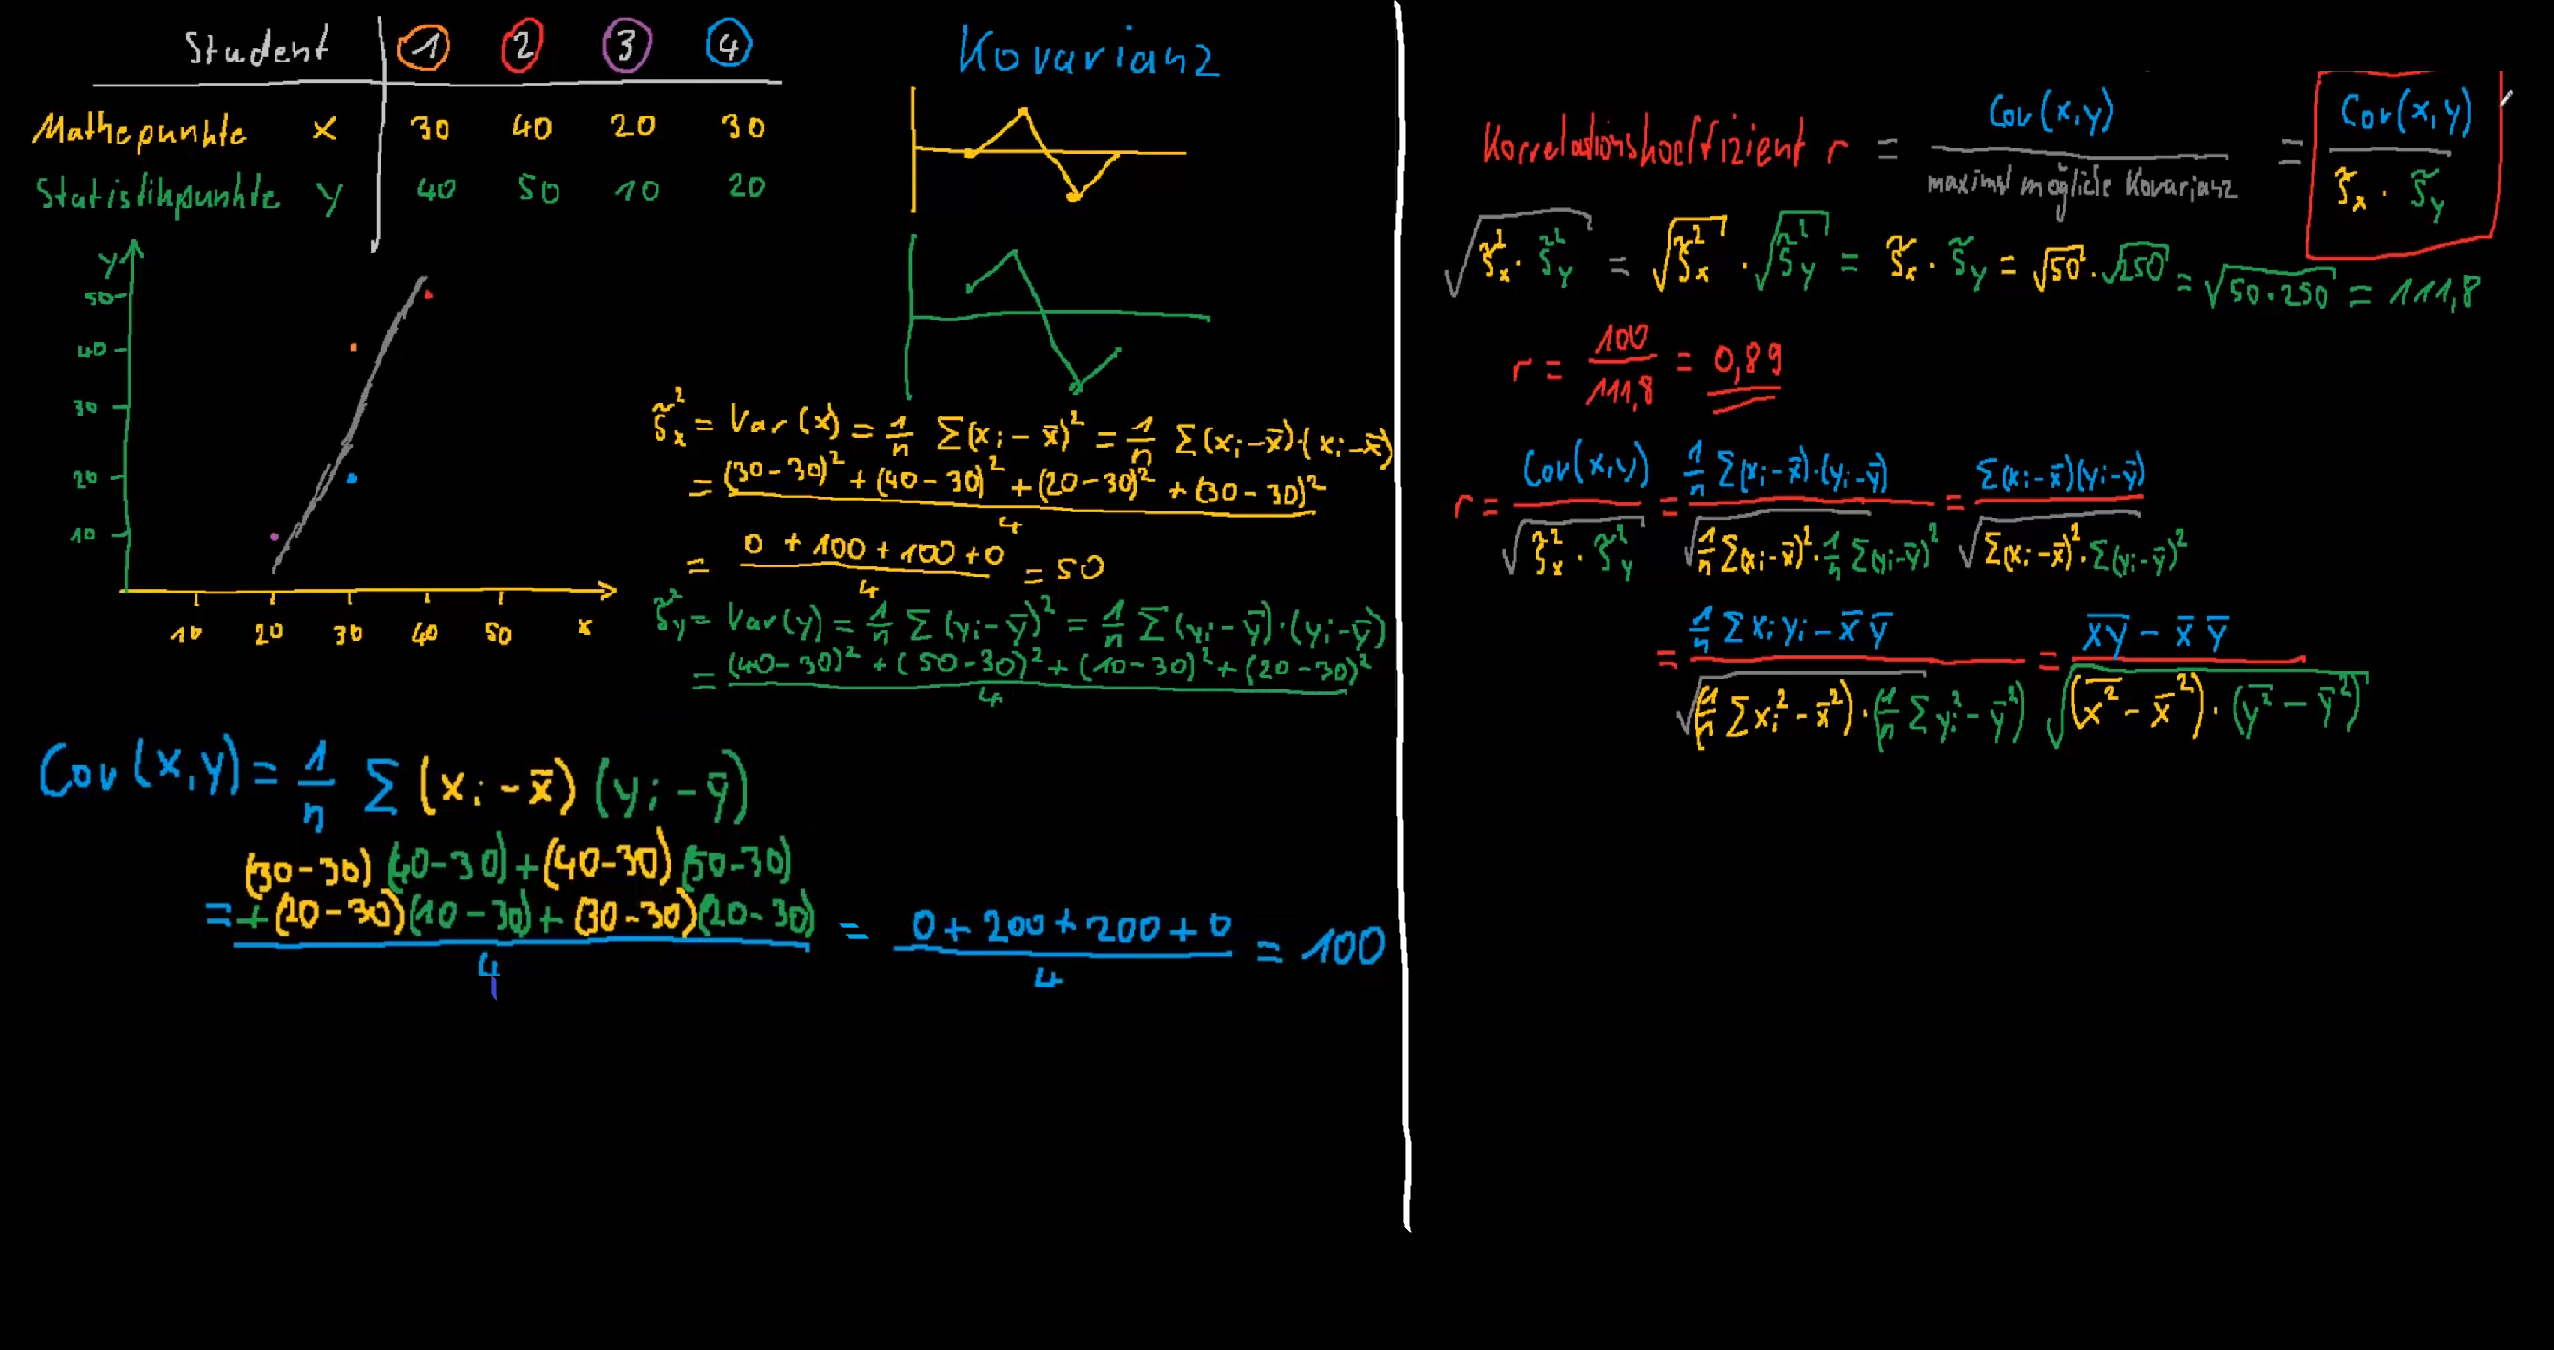 Student 1 2 3 4
Mathepunkte x 30 40 20 30
Statistikpunkte y 40 50 10 20
y
50
40
30
20
10
10 20 30 40 50 x
Kovarianz
s̃ₓ² = Var(x) = 1/n Σ(xᵢ-x̄)² = 1/n Σ(xᵢ-x̄)·(xᵢ-x̄)
= ((30-30)² + (40-30)² + (20-30)² + (30-30)²)/4
= (0 + 100 + 100 + 0)/4 = 50
s̃ᵧ² = Var(y) = 1/n Σ(yᵢ-ȳ)² = 1/n Σ(yᵢ-ȳ)·(yᵢ-ȳ)
= ((40-30)² + (50-30)² + (10-30)² + (20-30)²)/4
Cov(x,y) = 1/n Σ(xᵢ-x̄)(yᵢ-ȳ)
= ((30-30)(40-30) + (40-30)(50-30) + (20-30)(10-30) + (30-30)(20-30))/4 = (0 + 200 + 200 + 0)/4 = 100
Korrelationskoeffizient r = Cov(x,y)/maximal mögliche Kovarianz = Cov(x,y)/(s̃ₓ · s̃ᵧ)
√(s̃ₓ² · s̃ᵧ²) = √(s̃ₓ²) · √(s̃ᵧ²) = s̃ₓ · s̃ᵧ = √50 · √250 = √(50·250) = 111,8
r = 100/111,8 = 0,89
r = Cov(x,y)/√(s̃ₓ² · s̃ᵧ²) = (1/n Σ(xᵢ-x̄)·(yᵢ-ȳ))/√(1/n Σ(xᵢ-x̄)² · 1/n Σ(yᵢ-ȳ)²) = (Σ(xᵢ-x̄)(yᵢ-ȳ))/√(Σ(xᵢ-x̄)² · Σ(yᵢ-ȳ)²)
= (1/n Σxᵢyᵢ - x̄ ȳ)/√((1/n Σxᵢ² - x̄²) · (1/n Σyᵢ² - ȳ²)) = (x̅y̅ - x̄ ȳ)/√((x²̅ - x̄²) · (y²̅ - ȳ²))